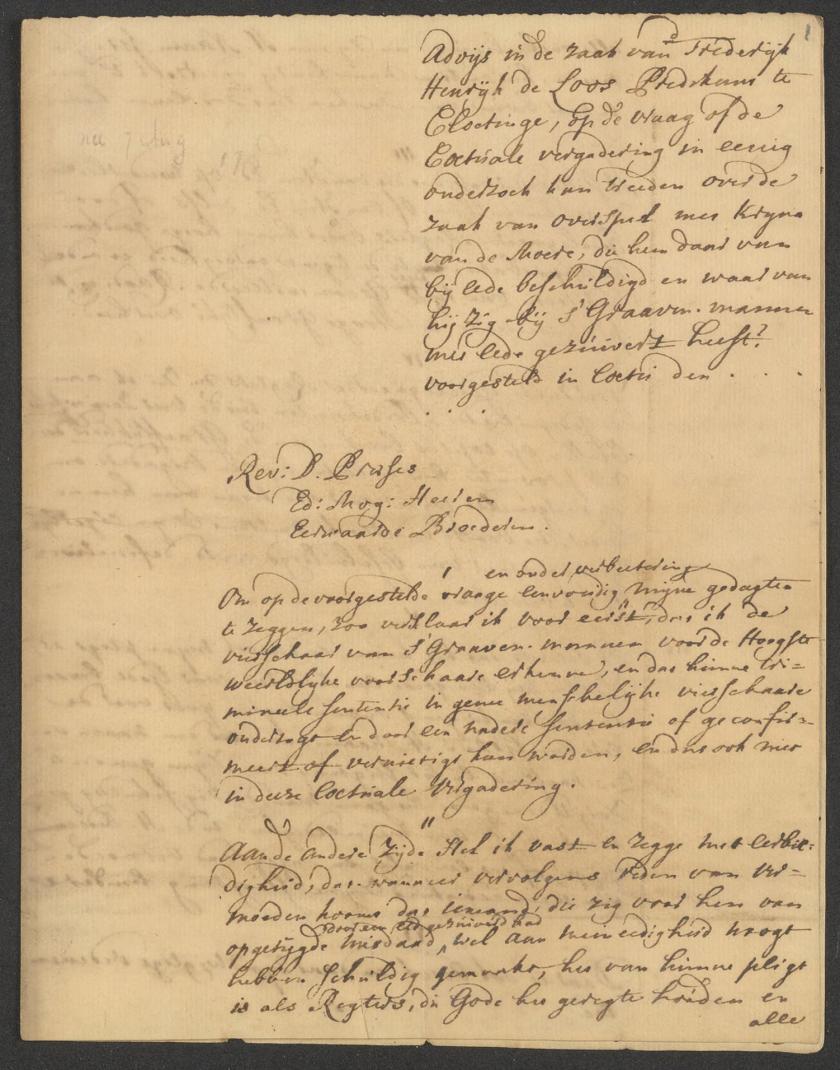 1
Advijs in de zaak van Frederijk
Henrijk de Loos Predikant te
Cloetinge, op de vraag of de
Coetuale vergadering in eenig
onderzoek kan treeden over de
zaak van overspel met Kryna
van de Moere, die hem daar van
bij Eede beschuldigd en waar van
hij zig bij 's Graaven mannen
met Eede gezuivert heeft?
voorgesteld in Coetu den . . .
. . .
Rev: D. Praeses
Ed: Mog: Heeren
Eerwaarde Broederen.
en onder verbeetering
Om op de voorgestelde vraage eenvoudig mijne gedagten
te zeggen, zoo verklaar ik voor eerst, dat ik de
vierschaar van 's Graaven mannen voor de Hoogste
weereldlyke vierschaare erkenne, en dat hunne cri=
mineele sententie in geene menschelijke vierschaare
onderzogt en door een nadere sententie of geconfir=
meert of vernietigt kan worden, en dus ook niet
in deeze Coetuale vergadering.
Aan de andere zijde stel ik vast en zegge met eerbie=
digheid, dat wanneer vervolgens reden van ver=
moeden komt dat iemand, die zig voor hem van
door een eed gezuiverd had
opgetijgde misdaad, wel aan meineedigheid mogt
hebben schuldig gemaakt, het van hunne pligt
is als Regters, die Gode het geregte houden en
alle